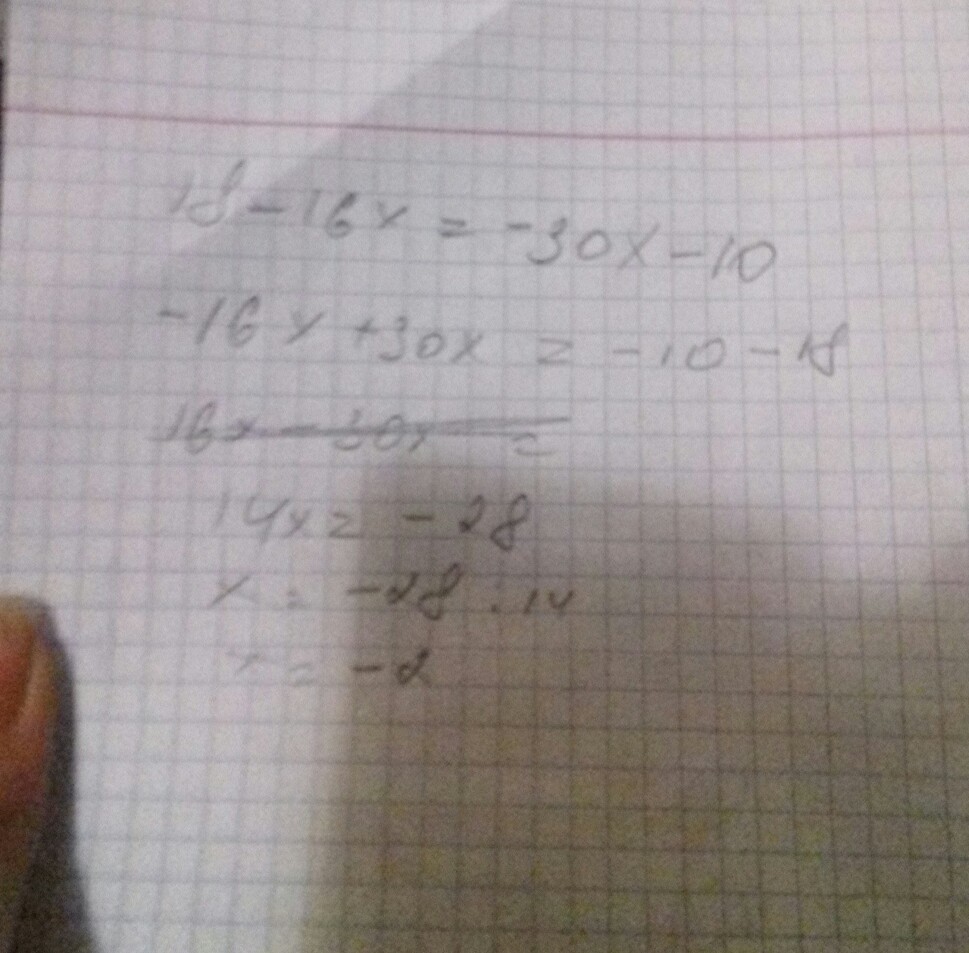 18-16x = -30x-10
-16x+30x = -10-18
16x-30x =
14x = -28
x = -28:14
x = -2